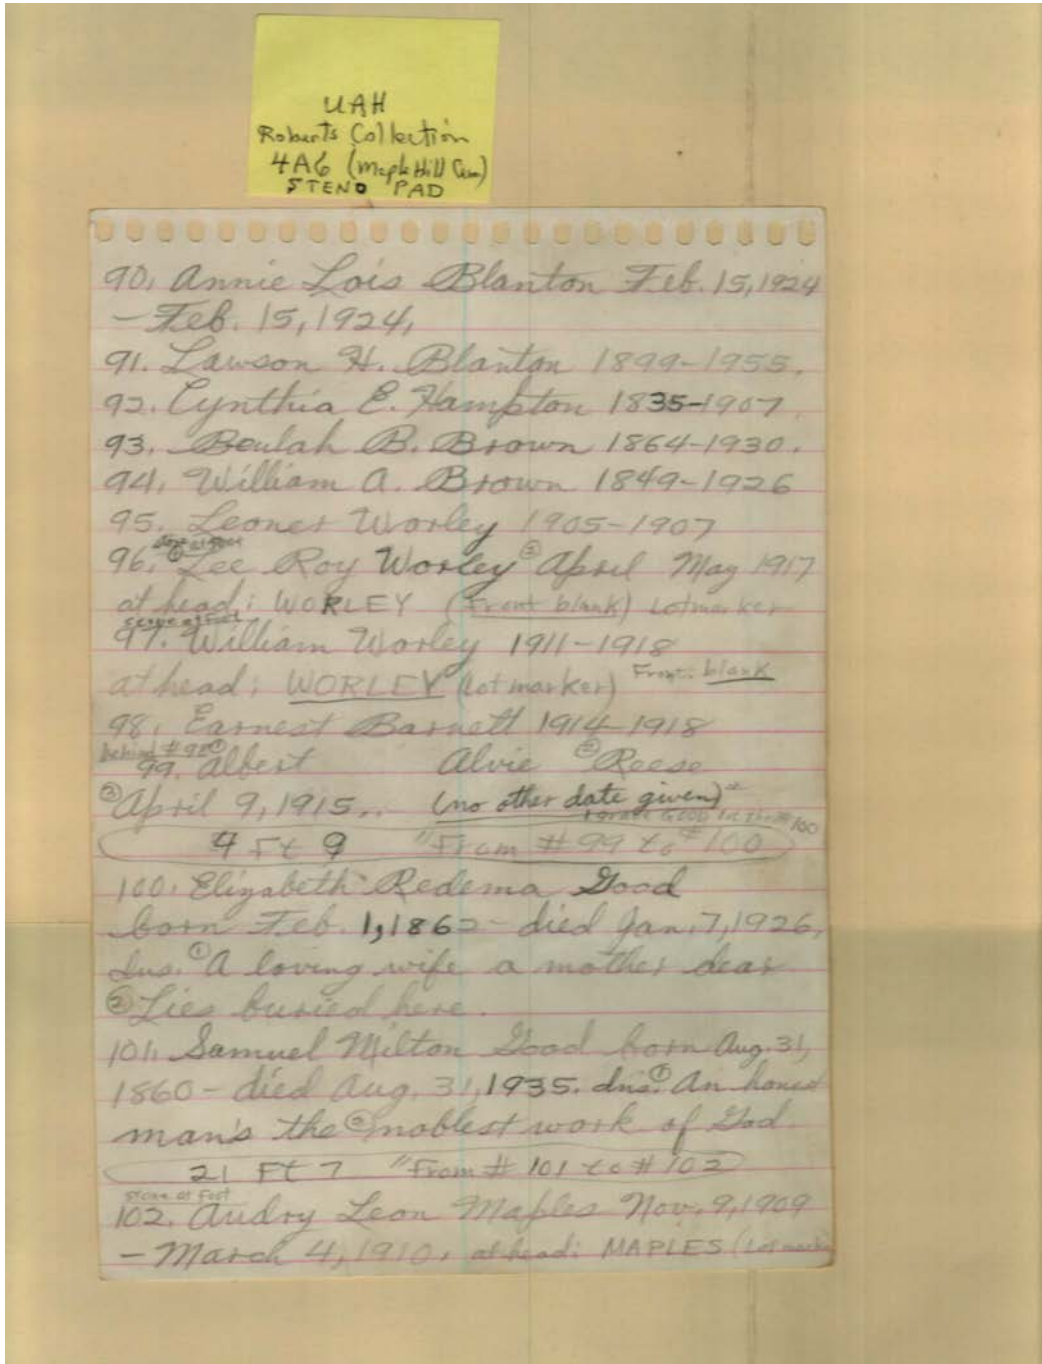 UAH
Roberts Collection
4A6 (Maple Hill Cem)
STENO PAD
90. Annie Lois Blanton Feb. 15, 1924
— Feb. 15, 1924.
91. Lawson H. Blanton 1899-1955.
92. Cynthia E. Hampton 1835-1907.
93. Beulah B. Brown 1864-1930.
94. William A. Brown 1849-1926
95. Leoner Worley 1905-1907
stone at foot
96. ① Lee Roy Worley ② April May 1917
at head: WORLEY (Front blank) Lotmarker
stone at foot
97. William Worley 1911-1918
at head: WORLEY (Lot marker) Front: blank
98. Earnest Barnett 1914-1918
behind #98
99. ① Albert Alvie ② Reese
③ April 9, 1915.. (no other date given)"
#100
4 Ft 9 "From #99 to #100
100. Elizabeth Redema Good
born Feb. 1, 1862 - died Jan. 7, 1926.
Ins. ① A loving wife a mother dear
② Lies buried here.
101. Samuel Milton Good born Aug. 31,
1860 - died Aug. 31, 1935. Ins. ① An honest
man's the ② noblest work of God.
21 Ft 7 "From # 101 to # 102
stone at foot
102. Audry Leon Maples Nov. 9, 1909
— March 4, 1910. at head: MAPLES (Lot marker